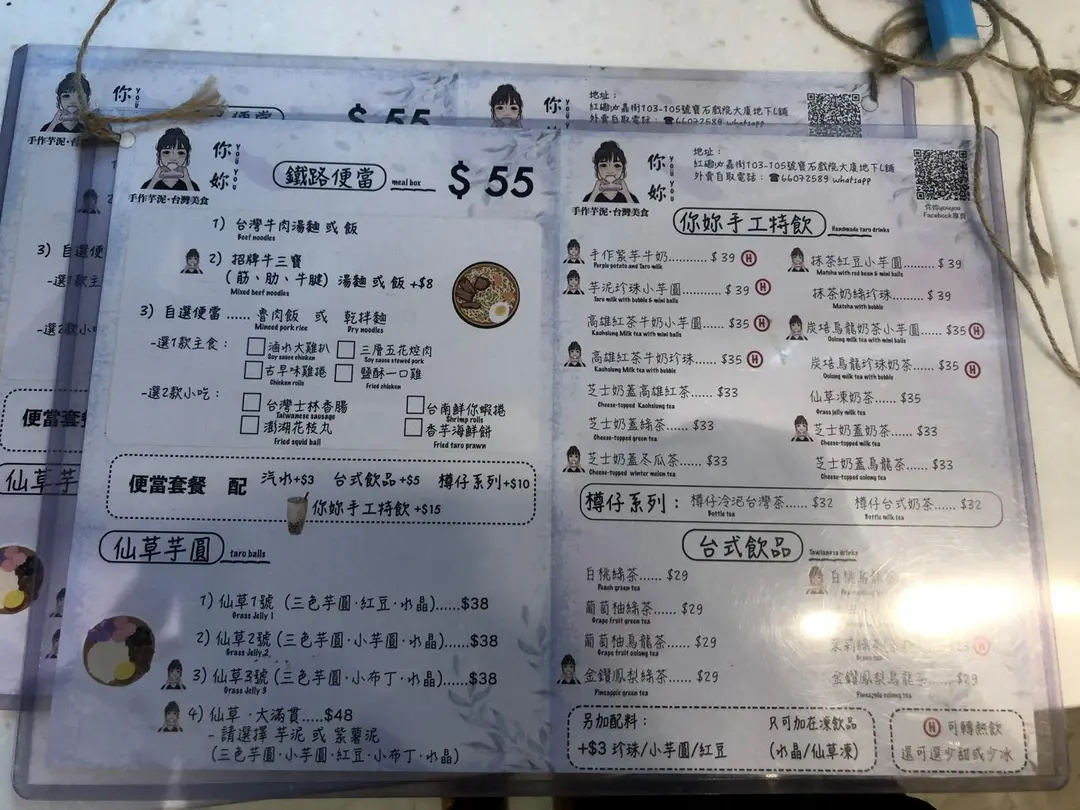 你 YOU
手作芋泥·台灣
$55
你
地址：
紅磡必嘉街103-105號寶石戲院大廈地下L舖
外賣自取電話：☎66072589 whatsapp
3) 自選便
便當套餐
仙草芋
你妳
YOU YOU
手作芋泥·台灣美食
鐵路便當 meal box $55
1) 台灣牛肉湯麵 或 飯
Beef noodles
2) 招牌牛三寶
(筋、肋、牛腱) 湯麵 或 飯 +$8
Mixed beef noodles
3) 自選便當...... 魯肉飯 或 乾拌麵
Minced pork rice Dry noodles
-選1款主食： 滷水大雞扒 三層五花焢肉
Soy sauce chicken Soy sauce stewed pork
古早味雞捲 鹽酥一口雞
Chicken rolls Fried chicken
-選2款小吃： 台灣士林香腸 台南鮮你蝦捲
Taiwanese sausage Shrimp rolls
澎湖花枝丸 香芋海鮮餅
Fried squid ball Fried taro prawn
便當套餐 配 汽水+$3 台式飲品+$5 樽仔系列+$10
你妳手工特飲 +$15
仙草芋圓 taro balls
1) 仙草1號 (三色芋圓·紅豆·水晶)......$38
Grass Jelly 1
2) 仙草2號 (三色芋圓·小芋圓·水晶)......$38
Grass Jelly 2
3) 仙草3號 (三色芋圓·小布丁·水晶)......$38
Grass Jelly 3
4) 仙草·大滿貫.....$48
- 請選擇 芋泥 或 紫薯泥
(三色芋圓·小芋圓·紅豆·小布丁·水晶)
你妳
YOU YOU
手作芋泥·台灣美食
地址：
紅磡必嘉街103-105號寶石戲院大廈地下L舖
外賣自取電話：☎66072589 whatsapp
你妳youyou
Facebook專頁
你妳手工特飲 Handmade taro drinks
手作紫芋牛奶......... $39 H
Purple potato and Taro milk
芋泥珍珠小芋圓......... $39 H
Taro milk with bubble & mini balls
高雄紅茶牛奶小芋圓...... $35 H
Kaohsiung Milk tea with mini balls
高雄紅茶牛奶珍珠...... $35 H
Kaohsiung Milk tea with bobble
芝士奶蓋高雄紅茶...... $33
Cheese-topped Kaohsiung tea
芝士奶蓋綠茶...... $33
Cheese-topped green tea
芝士奶蓋冬瓜茶...... $33
Cheese-topped winter melon tea
抹茶紅豆小芋圓...... $39
Matcha with red bean & mini balls
抹茶奶綠珍珠...... $39
Matcha with bubble
炭焙烏龍奶茶小芋圓...... $35 H
Oolong milk tea with mini balls
炭焙烏龍珍珠奶茶...... $35 H
Oolong milk tea with bobble
仙草凍奶茶...... $35
Grass jelly milk tea
芝士奶蓋奶茶...... $33
Cheese-topped milk tea
芝士奶蓋烏龍茶...... $33
Cheese-topped oolong tea
樽仔系列： 樽仔冷泡台灣茶...... $32 樽仔台式奶茶...... $32
Bottle tea Bottle milk tea
台式飲品 Taiwanese drinks
白桃綠茶...... $29
Peach green tea
葡萄柚綠茶...... $29
Grape fruit green tea
葡萄柚烏龍茶...... $29
Grape fruit oolong tea
金鑽鳳梨綠茶...... $29
Pineapple green tea
白桃烏龍茶
茉莉綠茶 H
Green tea
金鑽鳳梨烏龍茶...... $29
Pineapple oolong tea
另加配料： 只可加在凍飲品
+$3 珍珠/小芋圓/紅豆 (水晶/仙草凍)
H 可轉熱飲
還可選少甜或少冰